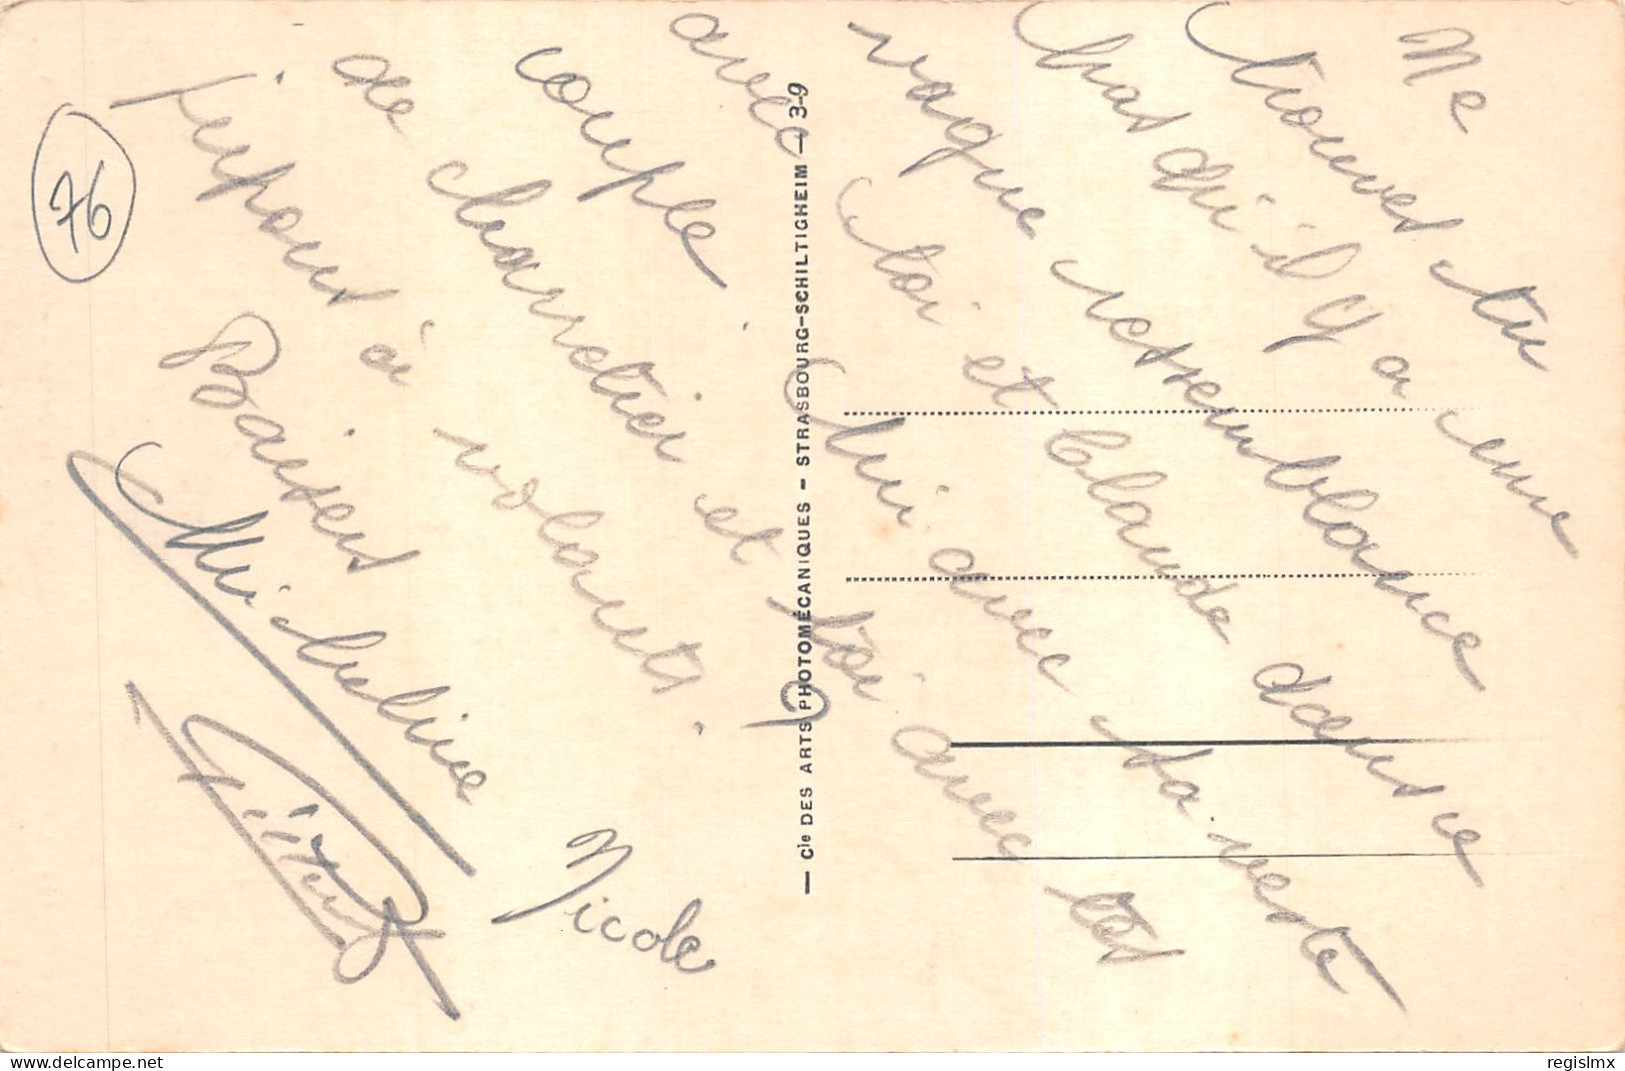 Ne
trouves tu
pas qu'il y a une
vague ressemblance
avec toi et Claude dans ce
couple. Lui avec sa veste
de charretier et toi avec tes
jupons à volants.
Baisers
Micheline
Nicole
76
— Cie DES ARTS PHOTOMÉCANIQUES - STRASBOURG-SCHILTIGHEIM — 3-9
delcampe.net
regislmx